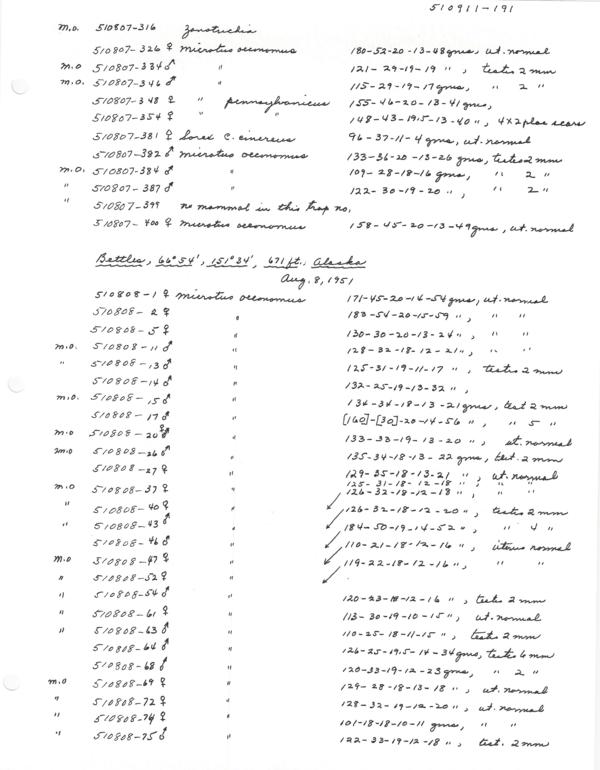 510911-191
m.o. 510807-316 Zonotrichia
510807-326 ♀ microtus oeconomus 180-52-20-13-48 gms, ut. normal
m.o 510807-334 ♂ " 121-29-19-19 ", testis 2 mm
m.o. 510807-346 ♂ " 115-29-19-17 gms, " 2 "
510807-348 ♀ " pennsylvanicus 155-46-20-13-41 gms,
510807-354 ♀ " " 148-43-19.5-13-40 ", 4X2 plac scars
510807-381 ♀ Sorex c. cinereus 96-37-11-4 gms, ut. normal
510807-382 ♂ microtus oeconomus 133-36-20-13-26 gms, testes 2 mm
m.o. 510807-384 ♂ " 109-28-18-16 gms, " 2 "
" 510807-387 ♂ " 122-30-19-20 ", " 2 "
" 510807-399 no mammal in this trap no.
510807-400 ♀ microtus oeconomus 158-45-20-13-49 gms, ut. normal
Bettles, 66°54', 151°34', 671 ft., Alaska
Aug. 8, 1951
510808-1 ♀ microtus oeconomus 171-45-20-14-54 gms, ut. normal
510808-2 ♀ " 183-54-20-15-59 ", " "
510808-5 ♀ " 130-30-20-13-24 ", " "
m.o. 510808-11 ♂ " 128-32-18-12-21 ",
" 510808-13 ♂ " 125-31-19-11-17 ", testis 2 mm
510808-14 ♂ " 132-25-19-13-32 ",
m.o. 510808-15 ♂ " 134-34-18-13-21 gms, test 2 mm
510808-17 ♂ " [160]-[30]-20-14-56 ", " 5 "
m.o 510808-20 ♀ " 133-33-19-13-20 ", ut. normal
m.o 510808-26 ♂ " 135-34-18-13-22 gms, test. 2 mm
510808-27 ♀ " 129-35-18-13-21 ", ut. normal
125-31-18-12-18 " " "
m.o 510808-37 ♀ " 126-32-18-12-18 ", " "
" 510808-40 ♀ " 126-32-18-12-20 ", testis 2 mm
" 510808-43 ♂ " 184-50-19-14-52 ", " 4 "
510808-46 ♂ " 110-21-18-12-16 ", uterus normal
m.o 510808-47 ♀ " 119-22-18-12-16 ", " "
" 510808-52 ♀ "
" 510808-54 ♂ " 120-23-18-12-16 ", testis 2 mm
" 510808-61 ♀ " 113-30-19-10-15 ", ut. normal
" 510808-63 ♂ " 110-25-18-11-15 ", testis 2 mm
510808-64 ♂ " 126-25-19.5-14-34 gms, testis 6 mm
510808-68 ♂ " 120-33-19-12-23 gms, " 2 "
m.o 510808-69 ♀ " 129-28-18-13-18 ", ut. normal
" 510808-72 ♀ " 128-32-19-12-20 ", ut. normal
" 510808-74 ♀ " 101-18-18-10-11 gms, " "
" 510808-75 ♂ " 122-33-19-12-18 ", test. 2 mm